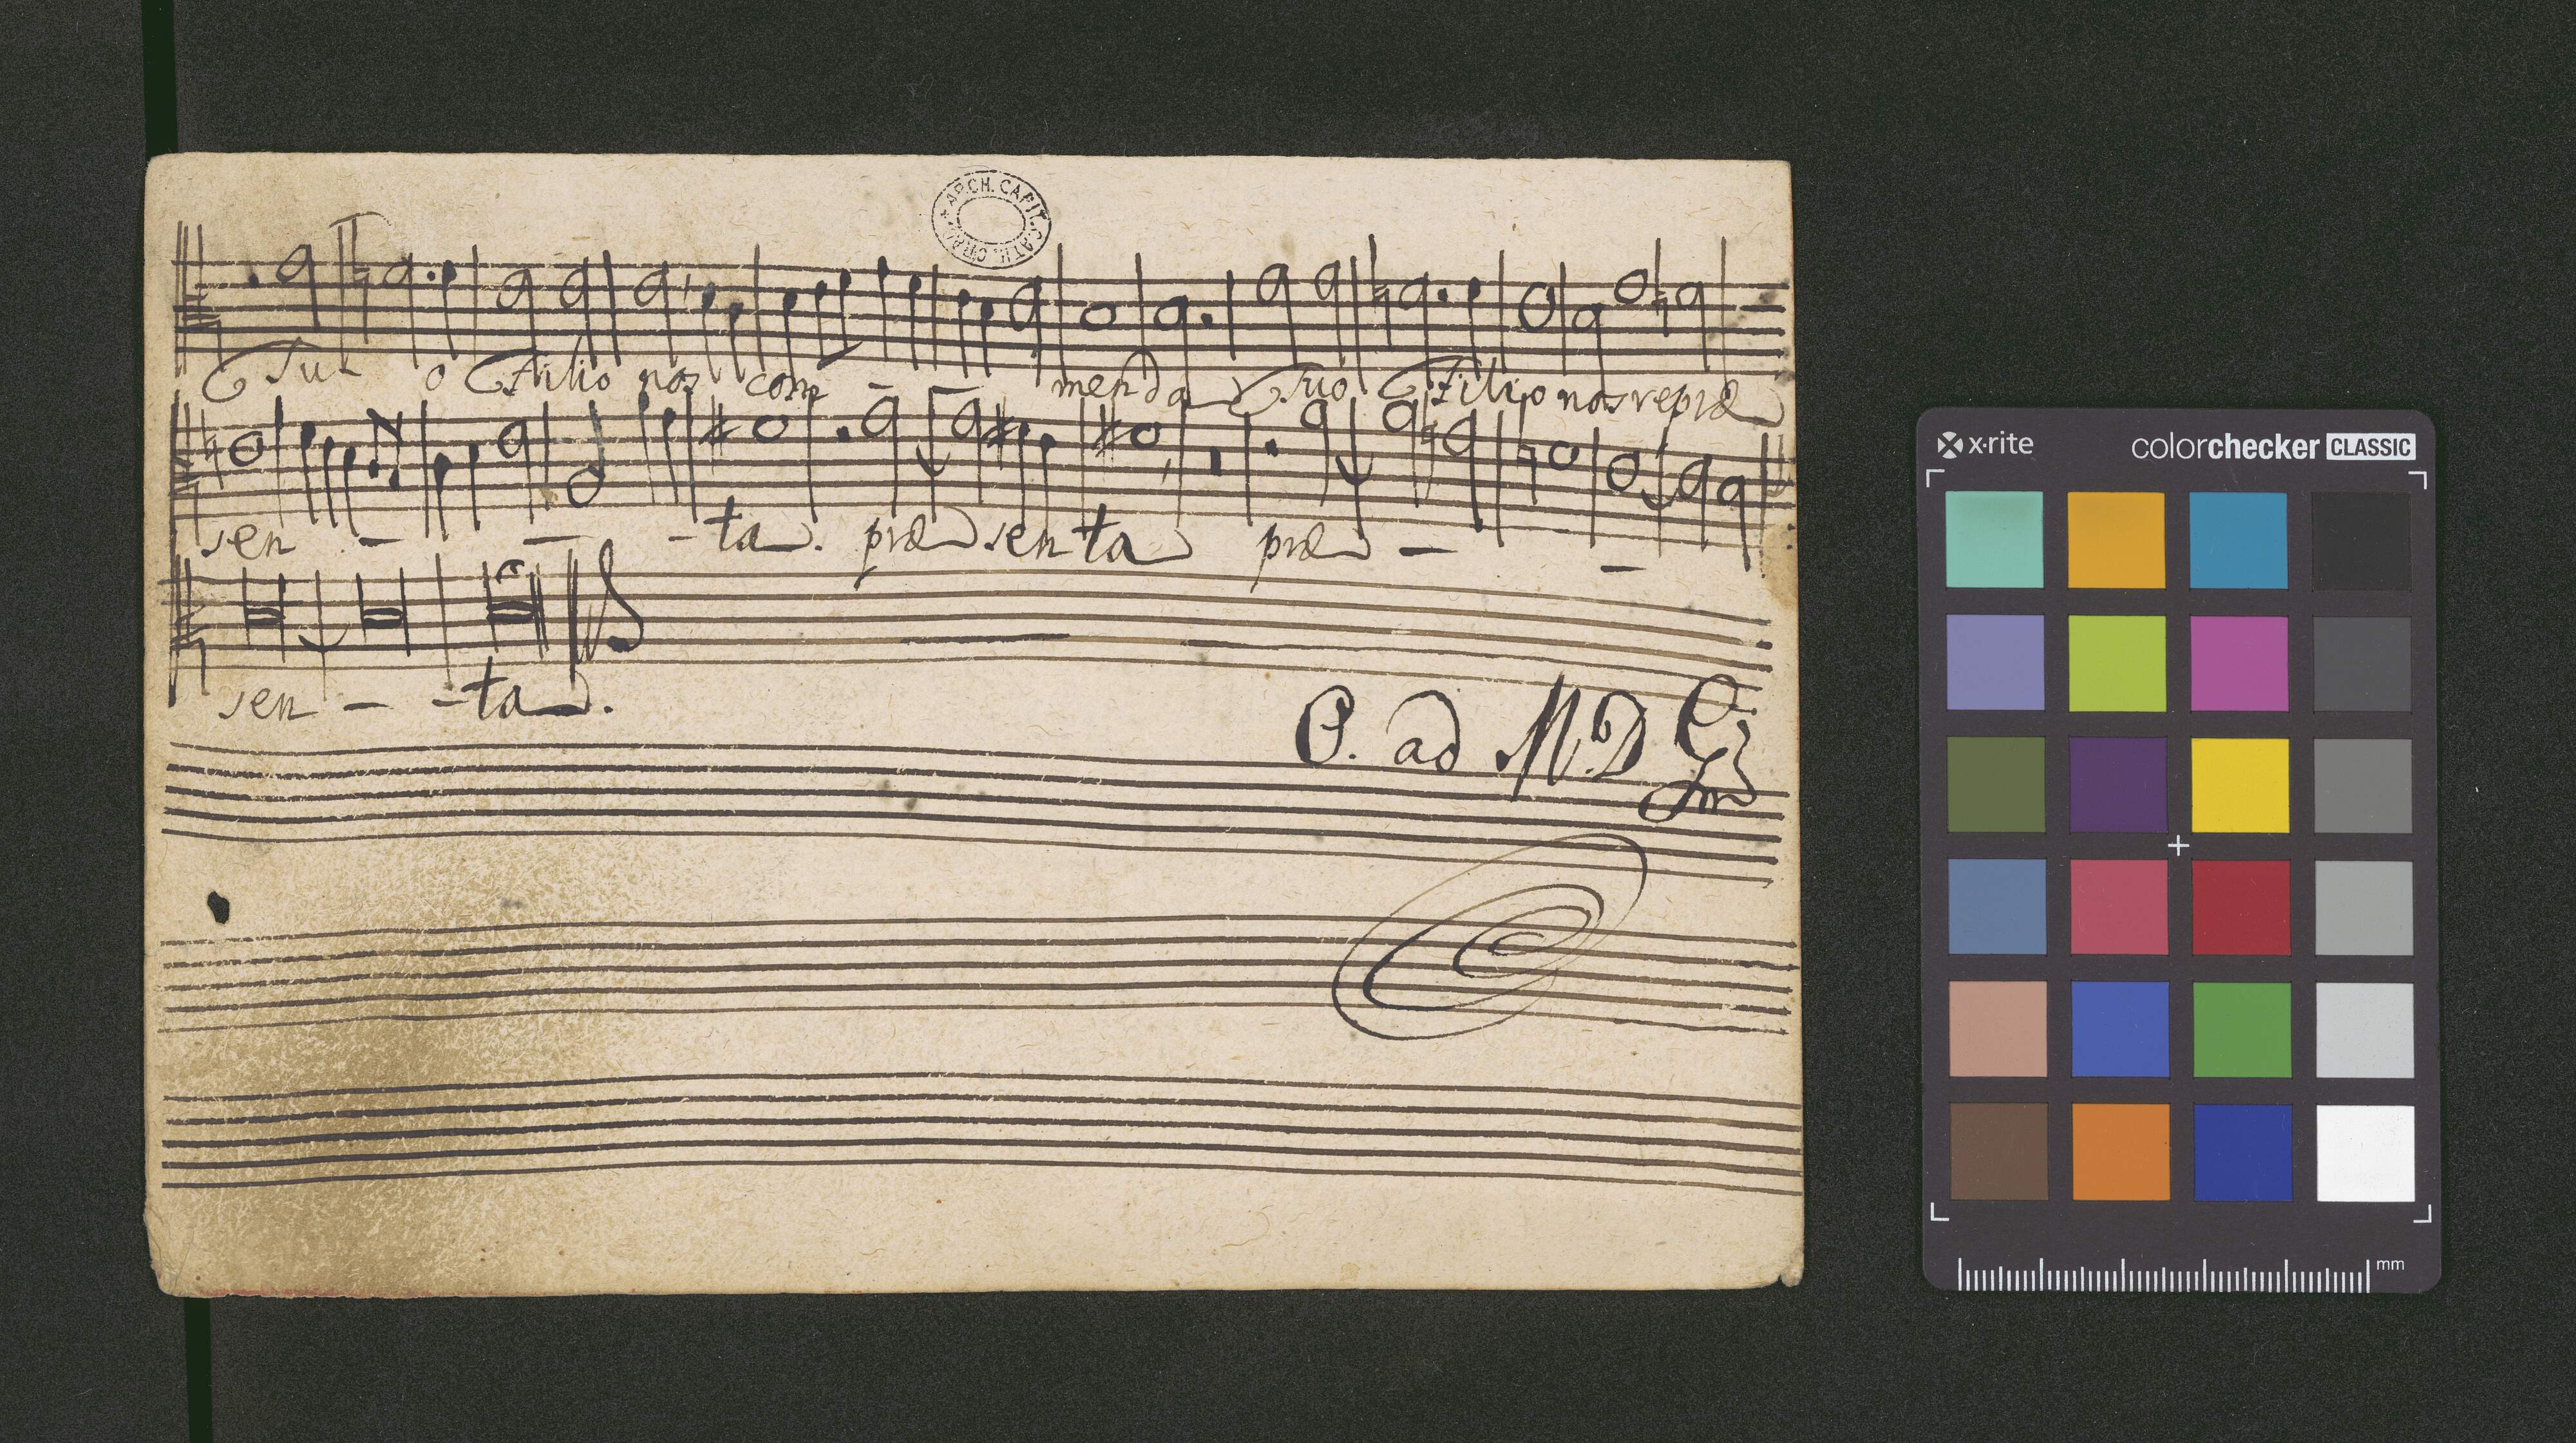 ARCH. CAPIT. CATH. CRAC.
Tu - o Filio nos com - - menda Tuo Filio nos repræ
sen - - - ta. præsenta præ - -
sen - - ta.
O. ad M. D. G.
x-rite
colorchecker CLASSIC
mm